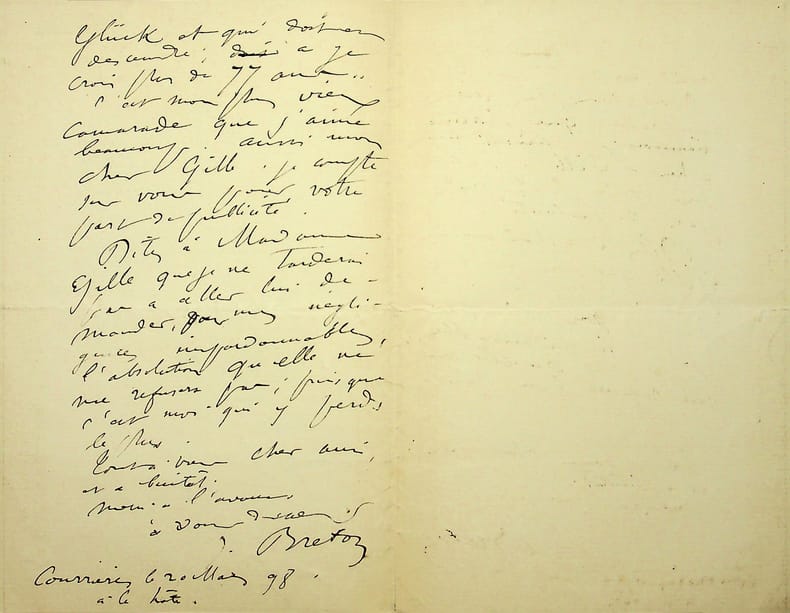 Glück et qui doit en
descendre; a je
crois plus de 77 ans..
C'est mon plus vieux
camarade que j'aime
beaucoup. aussi mon
cher Gille. je compte
sur vous pour votre
part de publicité.
Dites à Madame
Gille que je ne tarderai
pas à aller lui de-
mander, pour mes négli-
gences impardonnables,
l'absolution qu'elle ne
me refusera pas; puisque
c'est moi qui y perds
le plus.
Tout à vous cher ami,
et à bientôt.
Merci à l'avance
à vous
J. Breton
Courrières le 20 Mars 98.
à la hâte.